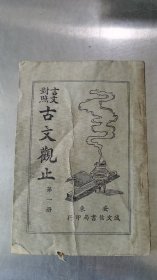 言文
對照
古文觀止
第一冊
安東
成文信書局印行